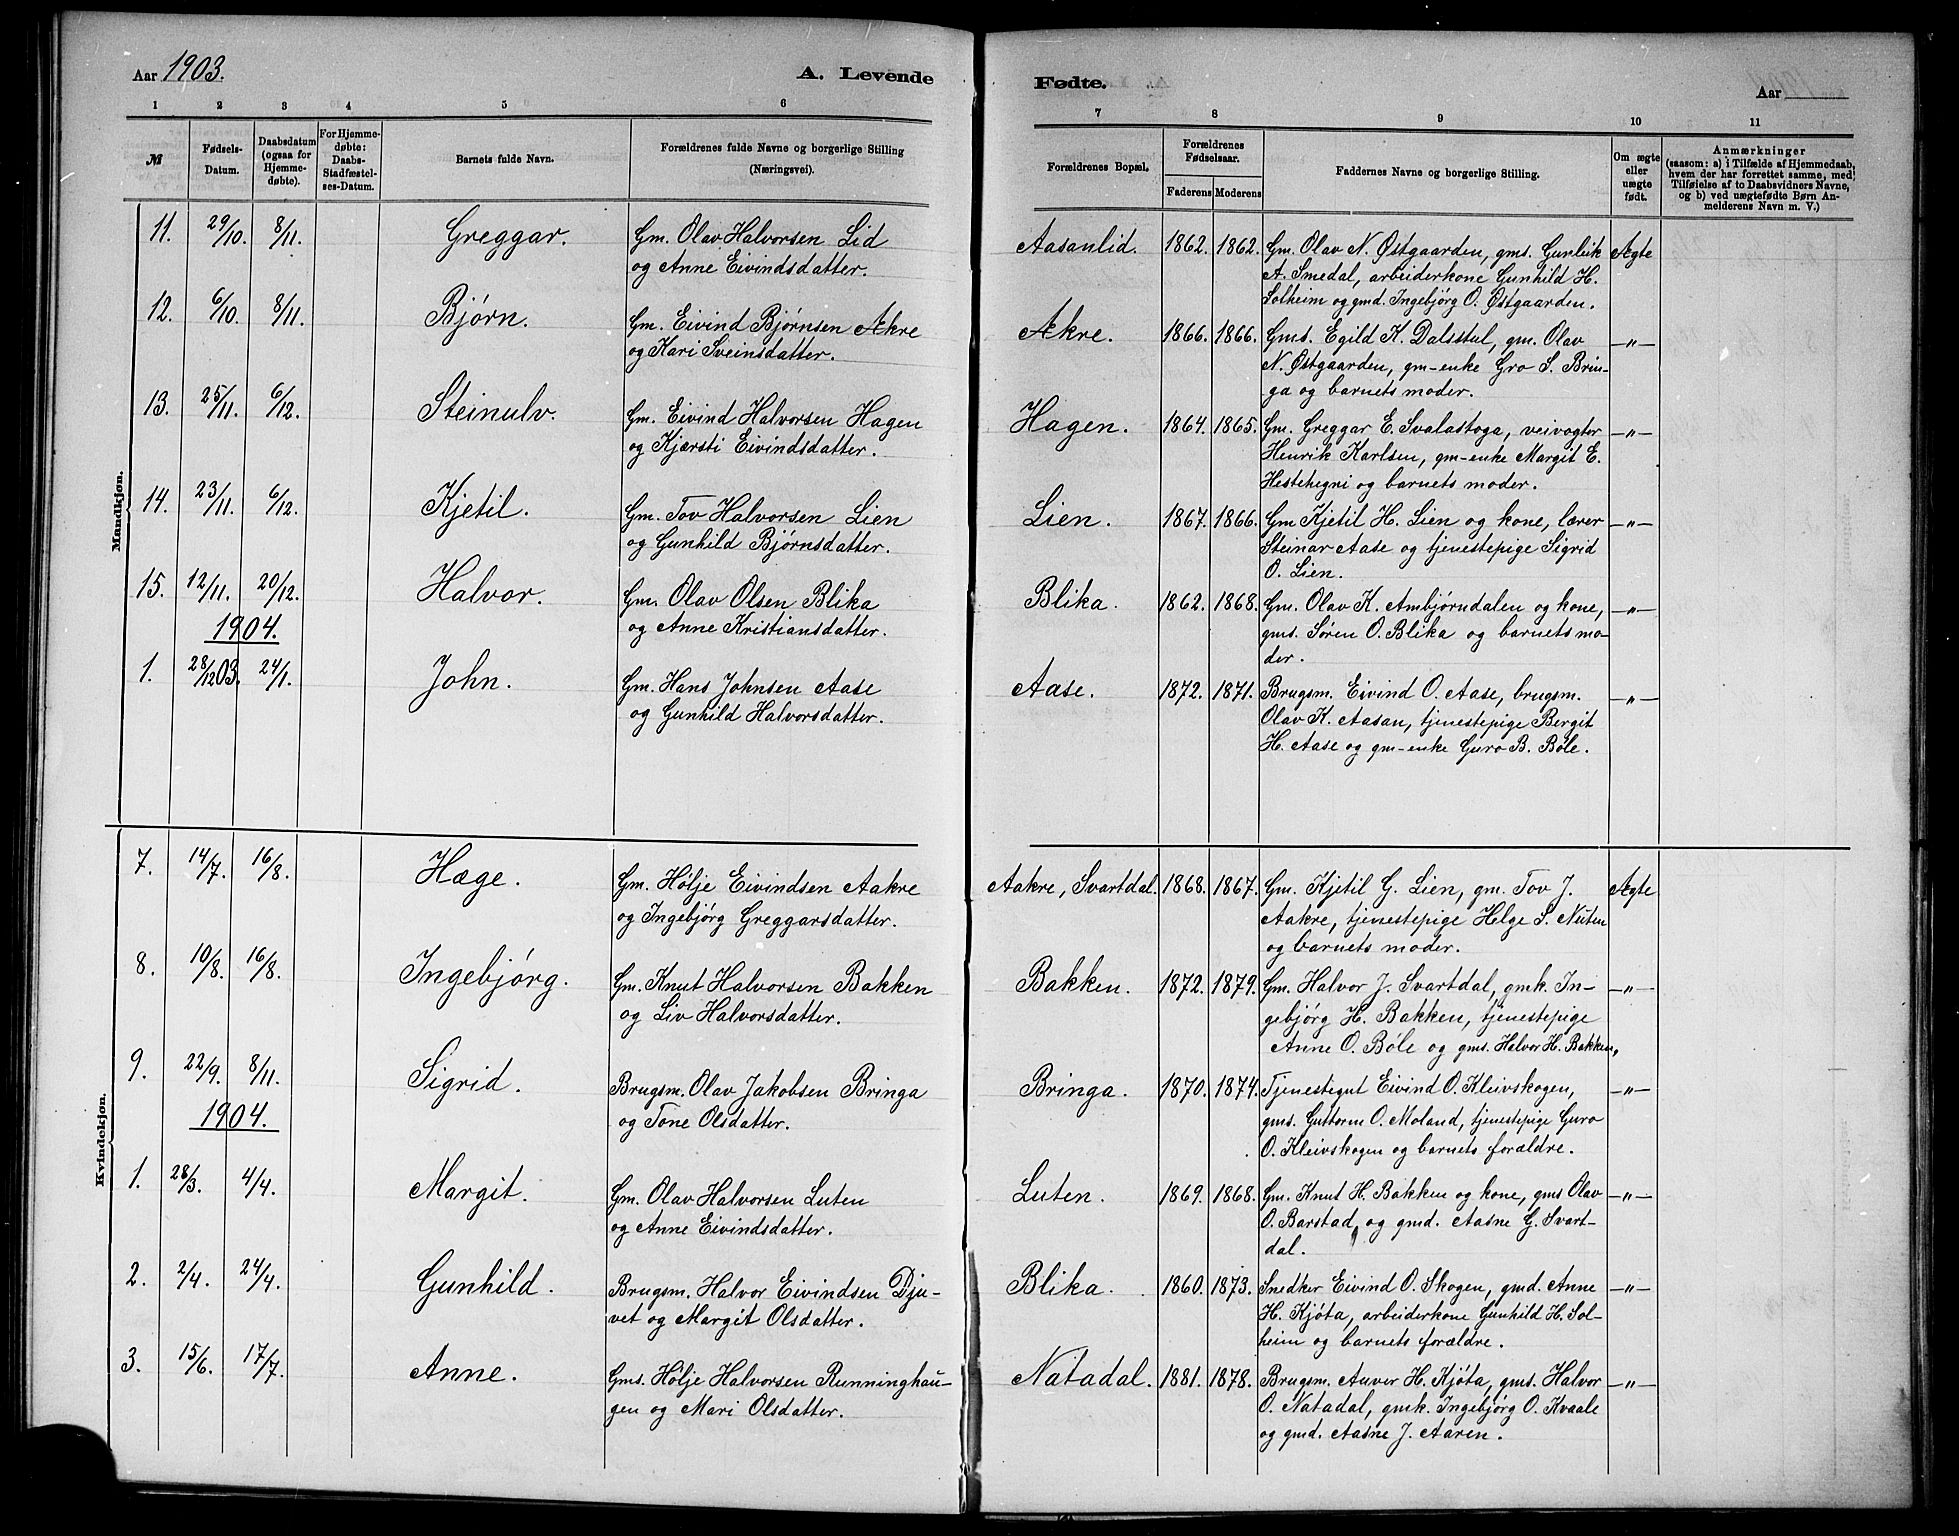 Aar 1903.
A. Levende
1 2 3 4 5 6
№
Fødsels-
Datum.
Daabsdatum
(ogsaa for
Hjemme-
døbte).
For Hjemme-
døbte:
Daabs-
Stadfæstel-
ses-Datum.
Barnets fulde Navn.
Forældrenes fulde Navne og borgerlige Stilling
(Næringsvei).
Mandkjøn.
11. 29/10. 8/11. Greggar. Gm. Olav Halvorsen Lid
og Anne Eivindsdatter.
12. 6/10. 8/11. Bjørn. Gm. Eivind Bjørnsen Ækre
og Kari Sveinsdatter.
13. 25/11. 6/12. Steinulv. Gm. Eivind Halvorsen Hagen
og Kjærsti Eivindsdatter.
14. 23/11. 6/12. Kjetil. Gm. Tov Halvorsen Lien
og Gunhild Bjørnsdatter.
15. 12/11. 20/12. Halvor. Gm. Olav Olsen Blika
og Anne Kristiansdatter.
1904.
1. 28/12 03. 24/1. John. Gm. Hans Johnsen Aase
og Gunhild Halvorsdatter.
Kvindekjøn.
7. 14/7. 16/8. Hæge. Gm. Hølje Eivindsen Aakre
og Ingebjørg Greggarsdatter.
8. 10/8. 16/8. Ingebjørg. Gm. Knut Halvorsen Bakken
og Liv Halvorsdatter.
9. 22/9. 8/11. Sigrid. Brugsm. Olav Jakobsen Bringa
og Tone Olsdatter.
1904.
1. 28/3. 4/4. Margit. Gm. Olav Halvorsen Luten
og Anne Eivindsdatter.
2. 2/4. 24/4. Gunhild. Brugsm. Halvor Eivindsen Dju-
vet og Margit Olsdatter.
3. 15/6. 17/7. Anne. Gms. Hølje Halvorsen Runninghau-
gen og Mari Olsdatter.
Fødte.
Aar
7 8 9 10 11
Forældrenes Bopæl.
Forældrenes
Fødselsaar.
Faderens Moderens
Faddernes Navne og borgerlige Stilling.
Om ægte
eller
uægte
født.
Anmærkninger
(saasom: a) i Tilfælde af Hjemmedaab,
hvem der har forrettet samme, med
Tilføielse af to Daabsvidners Navne,
og b) ved uægtefødte Børn An-
melderens Navn m. V.)
Aasanlid. 1862. 1862. Gm. Olav N. Østgaarden, gms. Gunleik Ægte
A. Smedal, arbeiderkone Gunhild H.
Solheim og gmd. Ingebjørg O. Østgaarden.
Ækre. 1866. 1866. Gms. Egild K. Dalsstul, gm. Olav —"—
N. Østgaarden, gm-enke Gro S. Brin-
ga og barnets moder.
Hagen. 1864. 1865. Gm. Greggar E. Svalastoga, veivogter —"—
Henrik Karlsen, gm-enke Margit E.
Hestehegni og barnets moder.
Lien. 1867. 1866. Gm Kjetil H. Lien og kone, lærer —"—
Steinar Aase og tjenestepige Sigrid
O. Lien.
Blika. 1862. 1868. Gm. Olav K. Ambjørndalen og kone, —"—
gms. Søren O. Blika og barnets mo-
der.
Aase. 1872. 1871. Brugsm. Eivind O. Aase, brugsm. —"—
Olav K. Aasan, tjenestepige Bergit
H. Aase og gm-enke Guro B. Bøle.
Aakre, Svartdal. 1868. 1867. Gm. Kjetil G. Lien, gm. Tov J. Ægte
Aakre, tjenestepige Helge S. Nuten
og barnets moder.
Bakken. 1872. 1879. Gm. Halvor J. Svartdal, gmk. In- —"—
gebjørg H. Bakken, tjenestepige
Anne O. Bøle og gms. Halvor H. Bakken.
Bringa. 1870. 1874. Tjenestegut Eivind O. Kleivskogen, —"—
gms. Guttorm O. Moland, tjenestepige Guro
O. Kleivskogen og barnets forældre.
Luten. 1869. 1868. Gm. Knut H. Bakken og kone, gms Olav —"—
O. Barstad, og gmd. Aasne G. Svart-
dal.
Blika. 1860. 1873. Snedker Eivind O. Skogen, gmd. Anne —"—
H. Kjøta, arbeiderkone Gunhild H. Sol-
heim og barnets forældre.
Natadal. 1881. 1878. Brugsm. Auver H. Kjøta, gms. Halvor —"—
O. Natadal, gmk. Ingebjørg O. Kvaale
og gmd. Aasne J. Aaren.